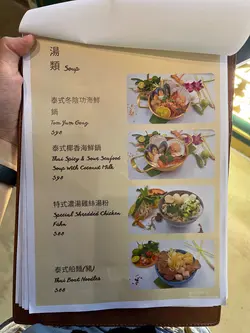 湯
類 Soup
泰式冬陰功海鮮
鍋
Tom Yum Gong
泰式椰香海鮮鍋
Thai Spicy & Sour Seafood
Soup with Coconut Milk
特式濃湯雞絲湯粉
Special Shredded Chicken
泰式船麵/豬/
Thai Boat Noodles